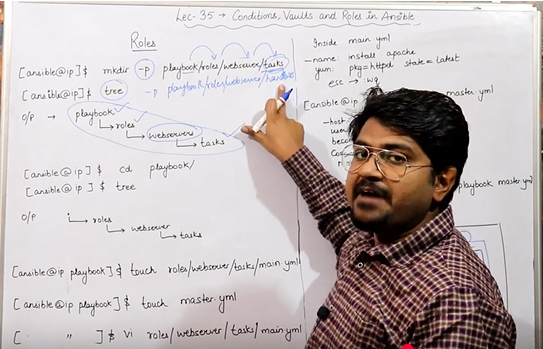 Lec-35 → Conditions, Vaults and Roles in Ansible
Roles
[ansible@ip]$ mkdir -p playbook/roles/webserver/tasks
[ansible@ip]$ tree
-p playbook/roles/webserver/
O/P → playbook
roles
webservers
tasks
[ansible@ip]$ cd playbook/
[ansible@ip]$ tree
O/P
roles
webserver
tasks
[ansible@ip playbook]$ touch roles/webserver/tasks/main.yml
[ansible@ip playbook]$ touch master.yml
[ " ]$ vi roles/webserver/tasks/main.yml
Inside main.yml
-name: install apache
yum: pkg=httpd state=latest
esc → :wq
[ansible@ip master.yml
-host
user
beco
playbook master.yml